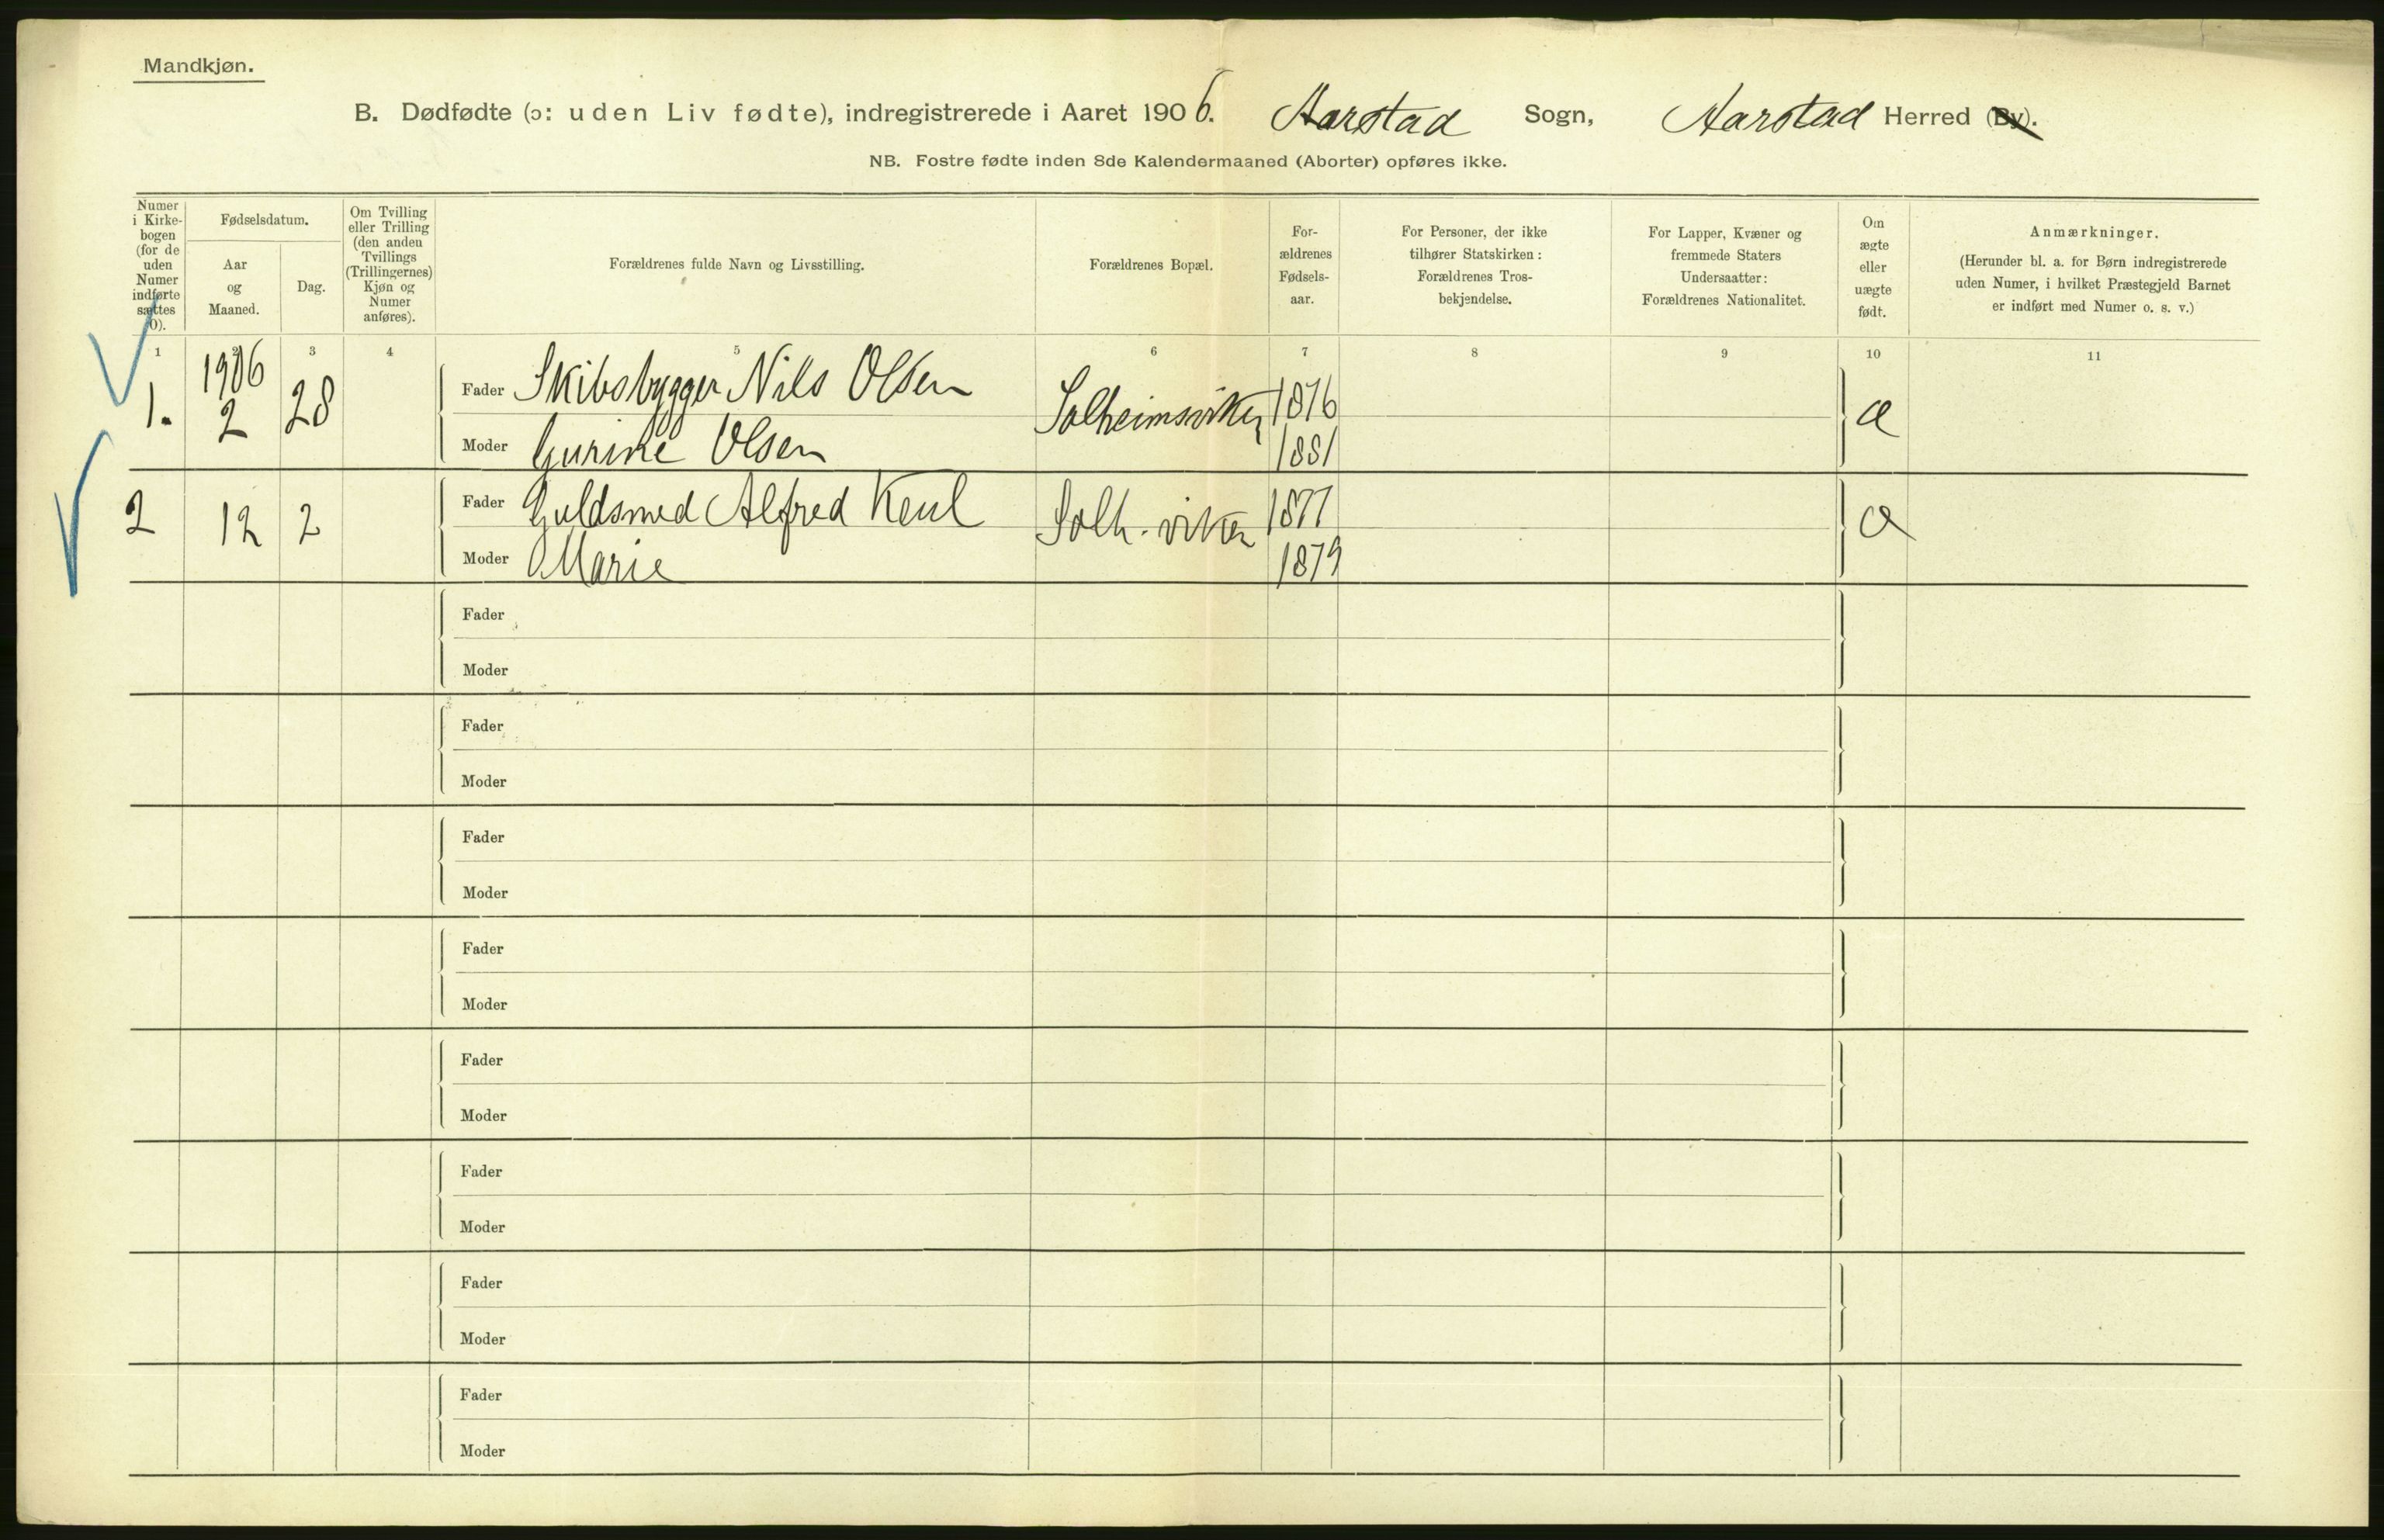 Mandkjøn.
B. Dødfødte (ɔ: uden Liv fødte), indregistrerede i Aaret 1906. Aarstad Sogn, Aarstad Herred (By).
NB. Fostre fødte inden 8de Kalendermaaned (Aborter) opføres ikke.
Numer
i Kirke-
bogen
(for de
uden
Numer
indførte
sættes
0).
Fødselsdatum.
Aar
og
Maaned.
Dag.
Om Tvilling
eller Trilling
(den anden
Tvillings
(Trillingernes)
Kjøn og
Numer
anføres).
Forældrenes fulde Navn og Livsstilling.
Forældrenes Bopæl.
For-
ældrenes
Fødsels-
aar.
For Personer, der ikke
tilhører Statskirken:
Forældrenes Tros-
bekjendelse.
For Lapper, Kvæner og
fremmede Staters
Undersaatter:
Forældrenes Nationalitet.
Om
ægte
eller
uægte
født.
Anmærkninger.
(Herunder bl. a. for Børn indregistrerede
uden Numer, i hvilket Præstegjeld Barnet
er indført med Numer o. s. v.)
1 2 3 4 5 6 7 8 9 10 11
1906
1. 2 28 Fader Skibsbygger Nils Olsen Solheimsviken 1876 æ
Moder Gurine Olsen 1881
2 12 2 Fader Guldsmed Alfred Keul Solh. viken 1877 æ
Moder Marie 1879
Fader
Moder
Fader
Moder
Fader
Moder
Fader
Moder
Fader
Moder
Fader
Moder
Fader
Moder
Fader
Moder